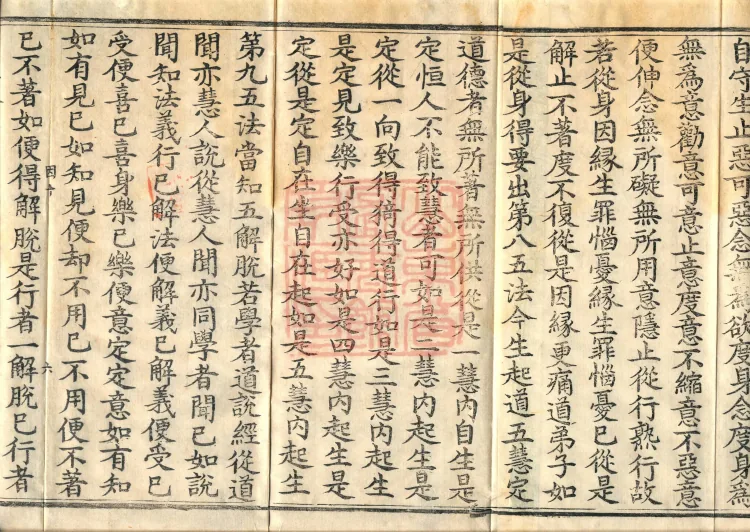 自守生止惡可惡念無為欲度身念度身為
無為意勸意可意止意度意不縮意不惡意
便伸念無所礙無所用意隱止從行熟行故
若從身因緣生罪惱憂緣生罪惱憂已從是
解止不著度不復從是因緣更痛道弟子如
是從身得要出第八五法令生起道五慧定
道德者無所著無所供從是一慧內自生是
定恒人不能致慧者可如是二慧內起生是
定從一向致得猗得道行如是三慧內起生
是定見致樂行受亦好如是四慧內起生是
定從是定自在坐自在起如是五慧內起生
第九五法當知五解脫若學者道說經從道
聞亦慧人說從慧人聞亦同學者聞已如說
聞知法義行已解法便解義已解義便受已
受便喜已喜身樂已樂便意定定意如有知
如有見已如知見便却不用已不用便不著
因十 六
已不著如便得解脫是行者一解脫已行者